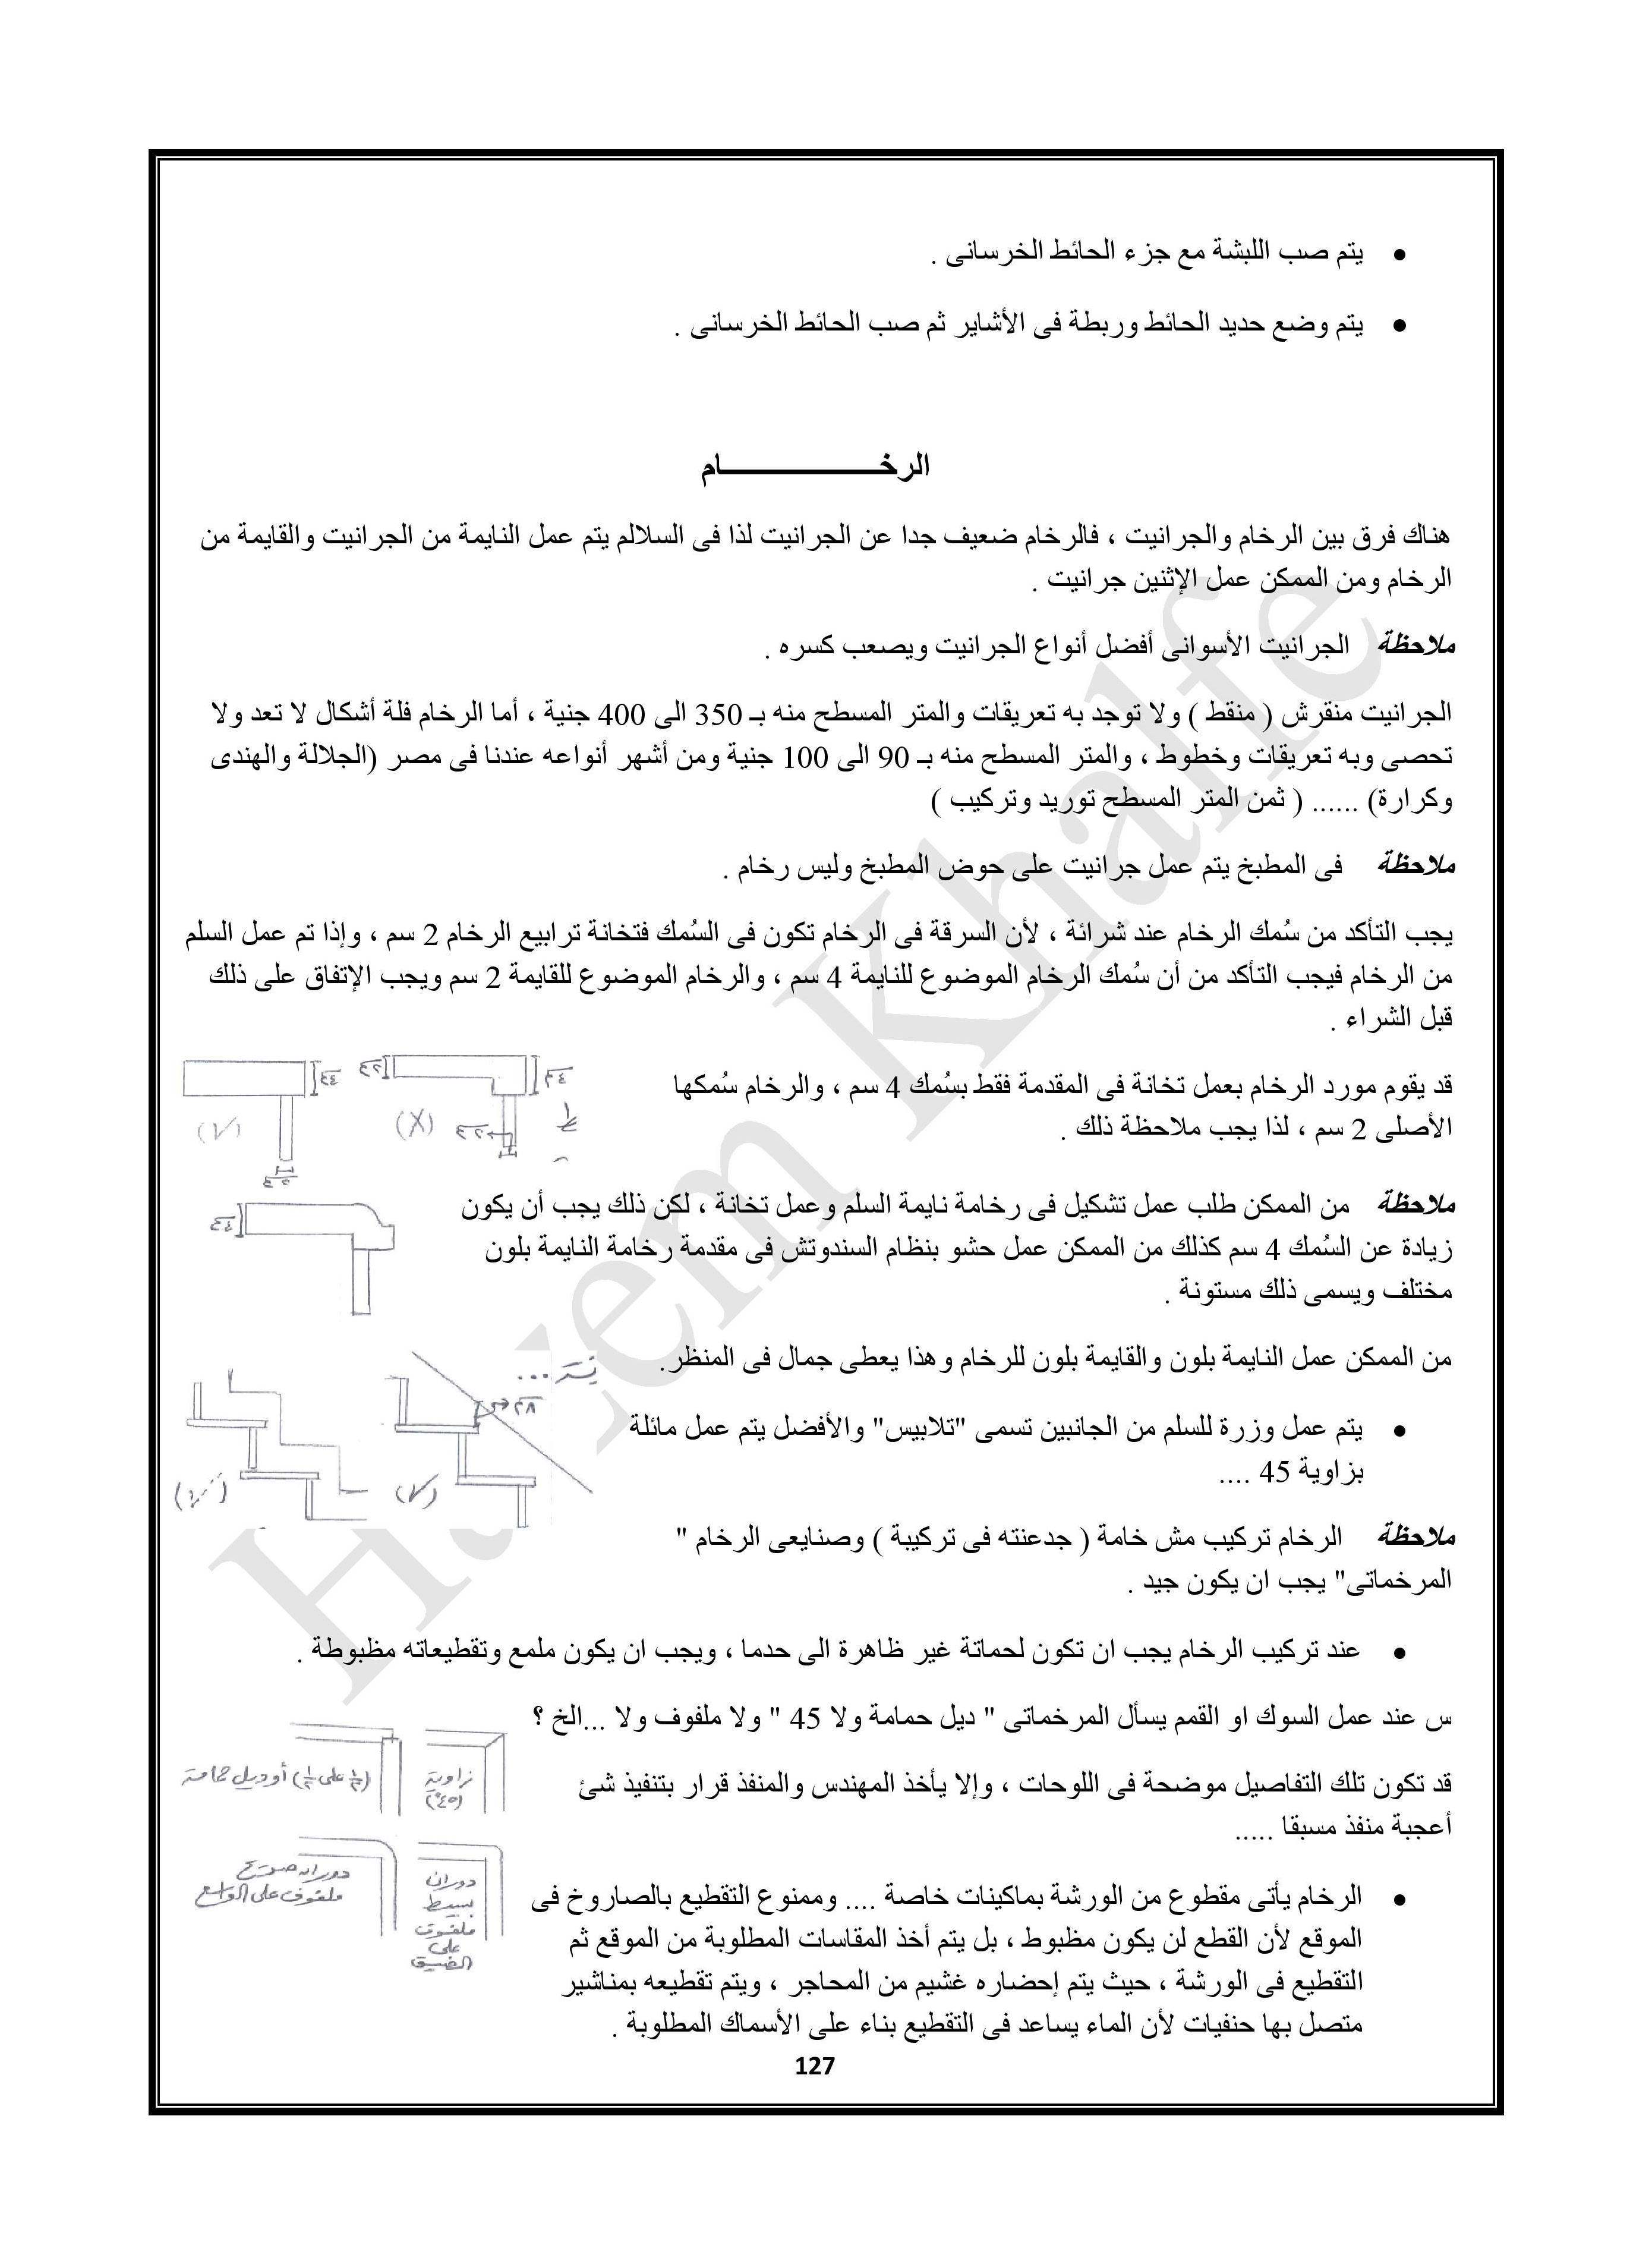 • يتم صب اللبشة مع جزء الحائط الخرسانى .
• يتم وضع حديد الحائط وربطة فى الأشاير ثم صب الحائط الخرسانى .
الرخــــــــــــــــام
هناك فرق بين الرخام والجرانيت ، فالرخام ضعيف جدا عن الجرانيت لذا فى السلالم يتم عمل النايمة من الجرانيت والقايمة من
الرخام ومن الممكن عمل الإثنين جرانيت .
ملاحظة الجرانيت الأسوانى أفضل أنواع الجرانيت ويصعب كسره .
الجرانيت منقرش ( منقط ) ولا توجد به تعريقات والمتر المسطح منه بـ 350 الى 400 جنية ، أما الرخام فلة أشكال لا تعد ولا
تحصى وبه تعريقات وخطوط ، والمتر المسطح منه بـ 90 الى 100 جنية ومن أشهر أنواعه عندنا فى مصر (الجلالة والهندى
وكرارة) ...... ( ثمن المتر المسطح توريد وتركيب )
ملاحظة فى المطبخ يتم عمل جرانيت على حوض المطبخ وليس رخام .
يجب التأكد من سُمك الرخام عند شرائة ، لأن السرقة فى الرخام تكون فى السُمك فتخانة ترابيع الرخام 2 سم ، وإذا تم عمل السلم
من الرخام فيجب التأكد من أن سُمك الرخام الموضوع للنايمة 4 سم ، والرخام الموضوع للقايمة 2 سم ويجب الإتفاق على ذلك
قبل الشراء .
قد يقوم مورد الرخام بعمل تخانة فى المقدمة فقط بسُمك 4 سم ، والرخام سُمكها
الأصلى 2 سم ، لذا يجب ملاحظة ذلك .
ملاحظة من الممكن طلب عمل تشكيل فى رخامة نايمة السلم وعمل تخانة ، لكن ذلك يجب أن يكون
زيادة عن السُمك 4 سم كذلك من الممكن عمل حشو بنظام السندوتش فى مقدمة رخامة النايمة بلون
مختلف ويسمى ذلك مستونة .
من الممكن عمل النايمة بلون والقايمة بلون للرخام وهذا يعطى جمال فى المنظر.
• يتم عمل وزرة للسلم من الجانبين تسمى "تلابيس" والأفضل يتم عمل مائلة
بزاوية 45 ....
ملاحظة الرخام تركيب مش خامة ( جدعنته فى تركيبة ) وصنايعى الرخام "
المرخماتى" يجب ان يكون جيد .
• عند تركيب الرخام يجب ان تكون لحماتة غير ظاهرة الى حدما ، ويجب ان يكون ملمع وتقطيعاته مظبوطة .
س عند عمل السوك او القمم يسأل المرخماتى " ديل حمامة ولا 45 " ولا ملفوف ولا ...الخ ؟
زاوية
(٤٥°)
(½ على ½) أو ديل حمامة
قد تكون تلك التفاصيل موضحة فى اللوحات ، وإلا يأخذ المهندس والمنفذ قرار بتنفيذ شئ
أعجبة منفذ مسبقا .....
دوران
بسيط
ملفوف
على
الضيق
ملفوف على الواسع
• الرخام يأتى مقطوع من الورشة بماكينات خاصة .... وممنوع التقطيع بالصاروخ فى
الموقع لأن القطع لن يكون مظبوط ، بل يتم أخذ المقاسات المطلوبة من الموقع ثم
التقطيع فى الورشة ، حيث يتم إحضاره غشيم من المحاجر ، ويتم تقطيعه بمناشير
متصل بها حنفيات لأن الماء يساعد فى التقطيع بناء على الأسماك المطلوبة .
127